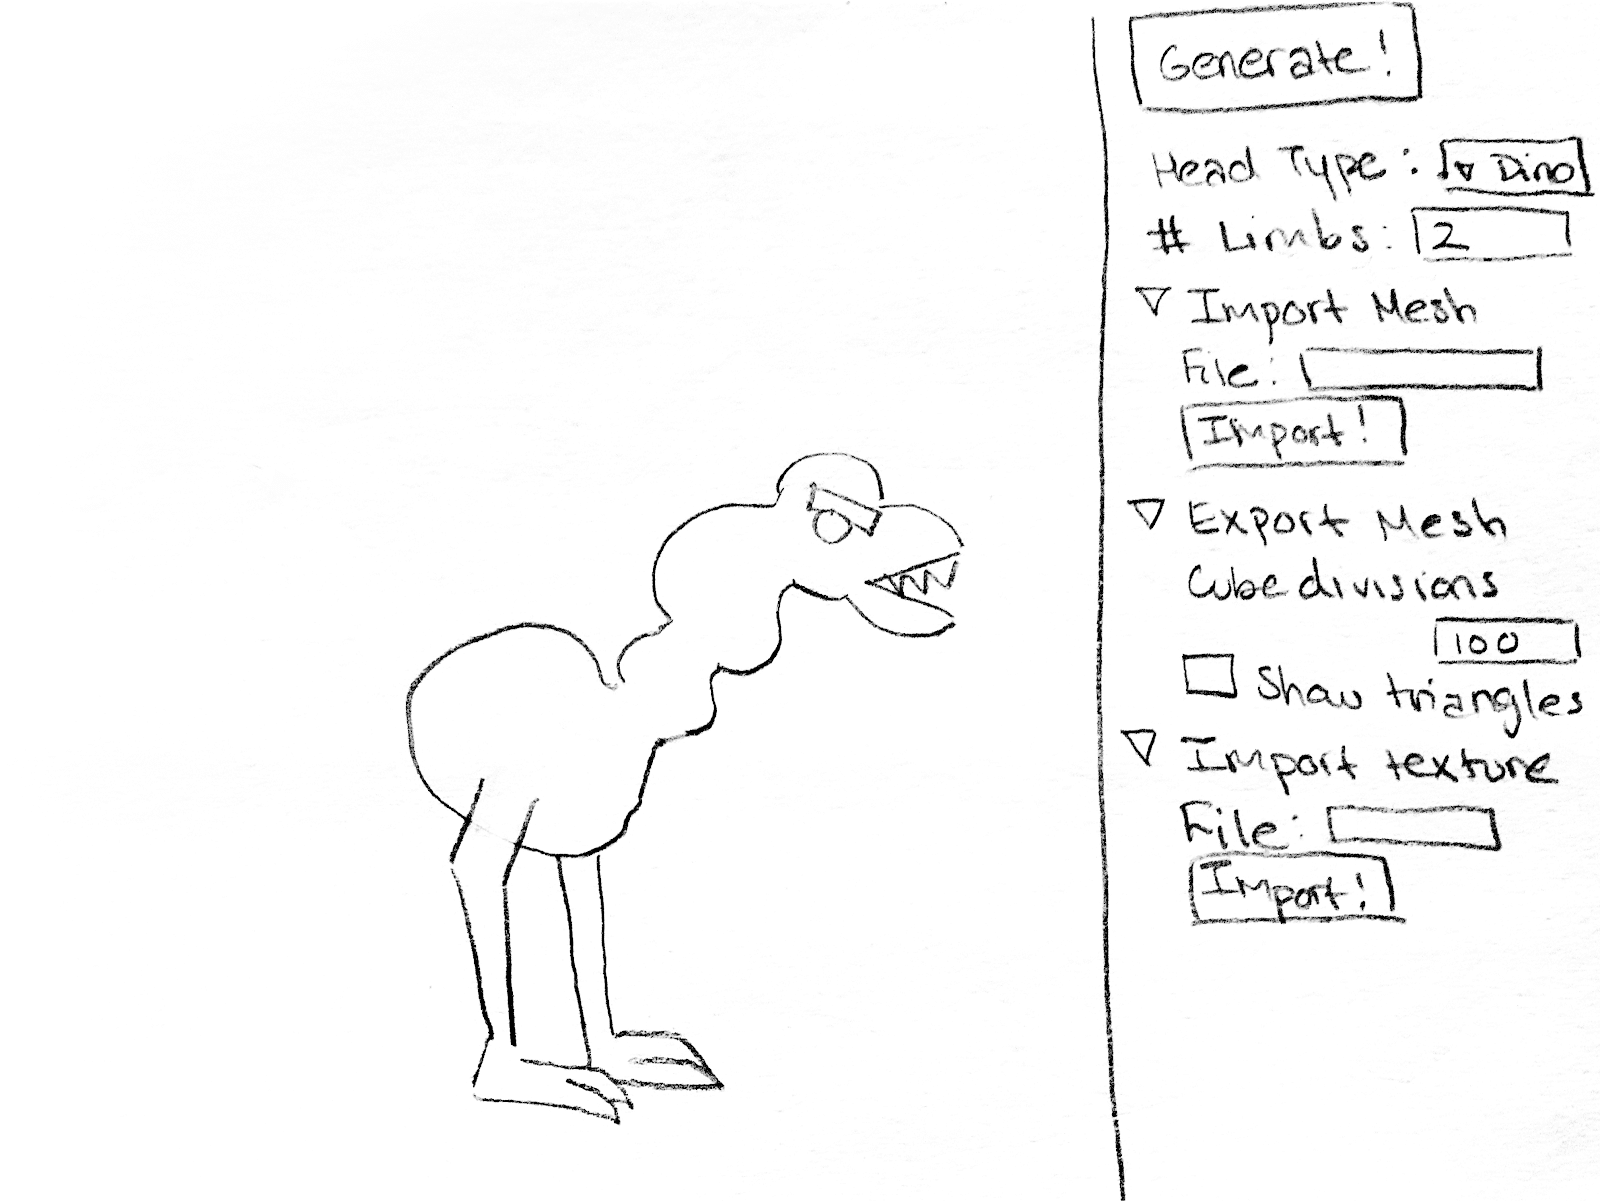 Generate!
Head Type: Dino
# Limbs: 2
Import Mesh
File:
Import!
Export Mesh
Cube divisions
100
Show triangles
Import texture
File:
Import!